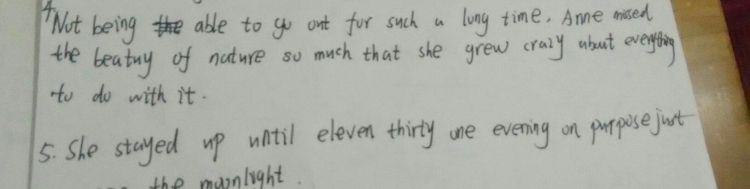 4. Not being the able to go out for such a long time. Anne missed
the beatuy of nature so much that she grew crazy about everything
to do with it.
5. She stayed up until eleven thirty one evening on purpose just
the moonlight.